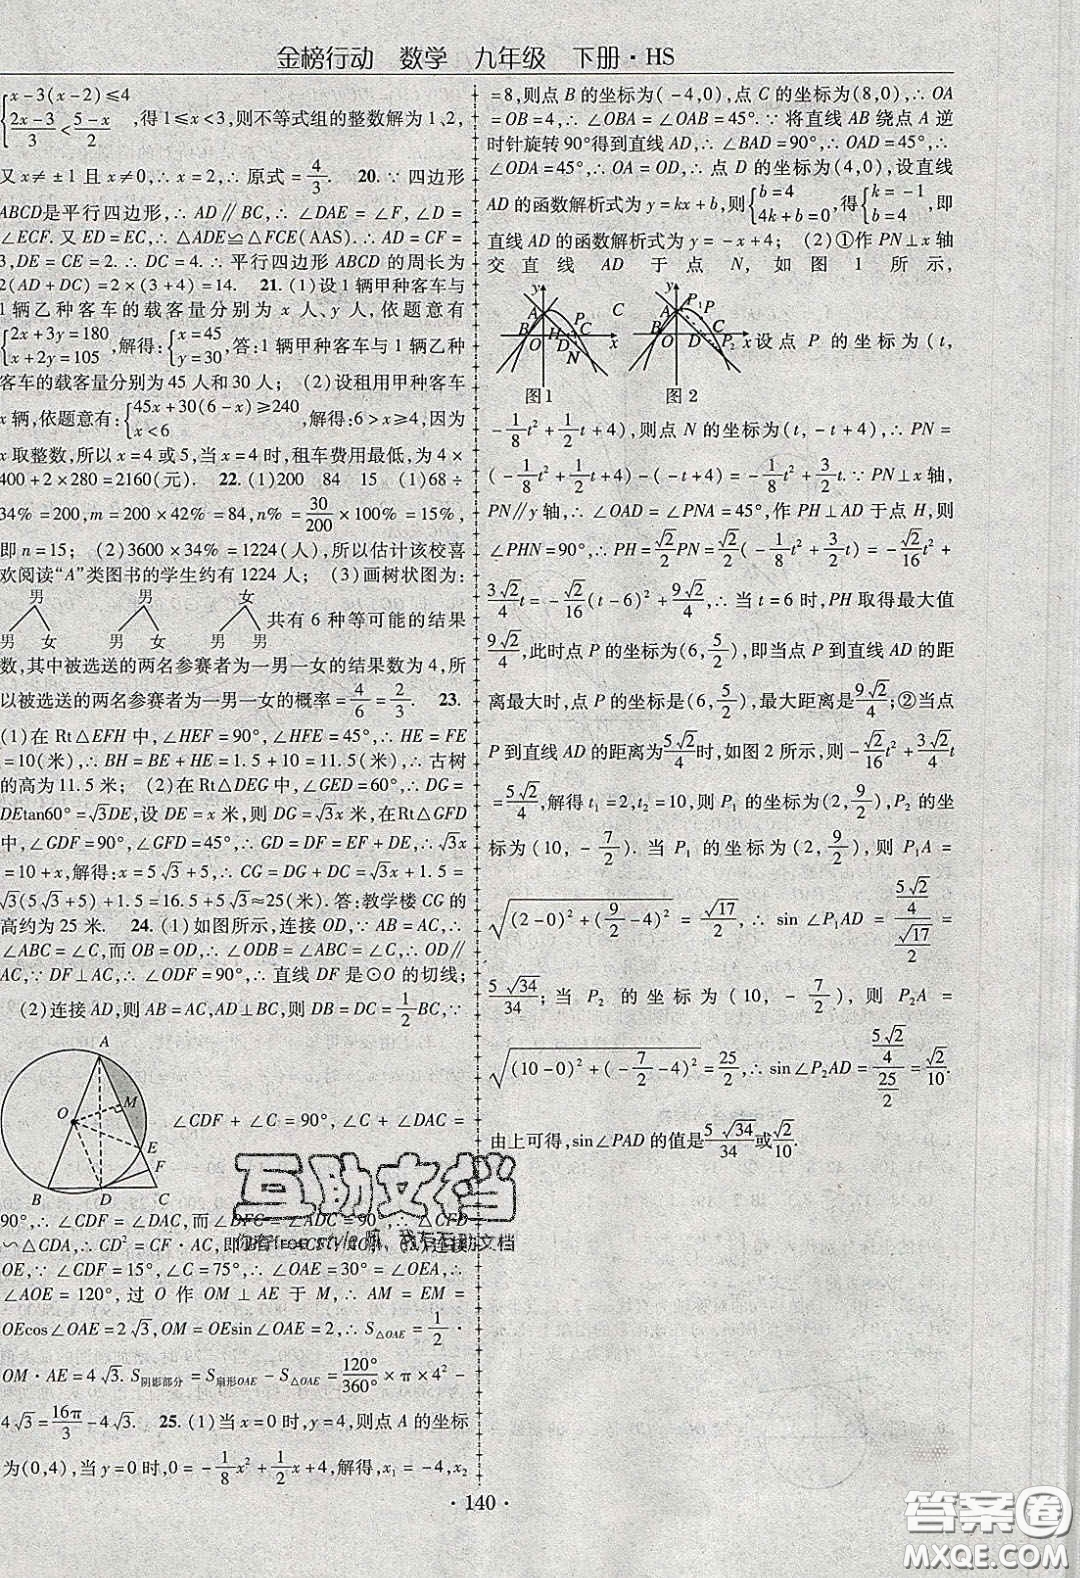 金榜行动 数学 九年级 下册·HS
{x-3(x-2)≤4
{(2x-3)/3<(5-x)/2 ,得1≤x<3,则不等式组的整数解为1、2,
又x≠±1且x≠0,∴x=2,∴原式=4/3. 20.∵四边形
ABCD是平行四边形,∴AD∥BC,∴∠DAE=∠F,∠D=
∠ECF.又ED=EC,∴△ADE≌△FCE(AAS).∴AD=CF=
3,DE=CE=2.∴DC=4.∴平行四边形ABCD的周长为
2(AD+DC)=2×(3+4)=14. 21.(1)设1辆甲种客车与
1辆乙种客车的载客量分别为x人、y人,依题意有
{2x+3y=180
{x+2y=105 ,解得:{x=45
{y=30,答:1辆甲种客车与1辆乙种
客车的载客量分别为45人和30人;(2)设租用甲种客车
x辆,依题意有:{45x+30(6-x)≥240
{x<6 ,解得:6>x≥4,因为
x取整数,所以x=4或5,当x=4时,租车费用最低,为4×
400+2×280=2160(元). 22.(1)200 84 15 (1)68÷
34%=200,m=200×42%=84,n%=30/200×100%=15%,
即n=15;(2)3600×34%=1224(人),所以估计该校喜
欢阅读“A”类图书的学生约有1224人;(3)画树状图为:
男 男 女
男 女 男 女 男 男 共有6种等可能的结果
数,其中被选送的两名参赛者为一男一女的结果数为4,所
以被选送的两名参赛者为一男一女的概率=4/6=2/3. 23.
(1)在Rt△EFH中,∠HEF=90°,∠HFE=45°,∴HE=FE
=10(米),∴BH=BE+HE=1.5+10=11.5(米),∴古树
的高为11.5米;(2)在Rt△DEG中,∠GED=60°,∴DG=
DEtan60°=√3DE,设DE=x米,则DG=√3x米,在Rt△GFD
中,∠GDF=90°,∠GFD=45°,∴GD=DF=EF+DE,∴√3x
=10+x,解得:x=5√3+5,∴CG=DG+DC=√3x+1.5=
√3(5√3+5)+1.5=16.5+5√3≈25(米).答:教学楼CG的
高约为25米. 24.(1)如图所示,连接OD,∵AB=AC,∴
∠ABC=∠C,而OB=OD,∴∠ODB=∠ABC=∠C,∴OD∥
AC,∵DF⊥AC,∴∠ODF=90°,∴直线DF是⊙O的切线;
(2)连接AD,则AB=AC,AD⊥BC,则DB=DC=1/2BC,∵
A
O M
E
F
B D C
∠CDF+∠C=90°,∠C+∠DAC=
90°,∴∠CDF=∠DAC,而∠DFC=∠ADC=90°,∴△CFD
∽△CDA,∴CD²=CF·AC,即BC²=4CF·AC;(3)连接
OE,∵∠CDF=15°,∠C=75°,∴∠OAE=30°=∠OEA,∴
∠AOE=120°,过O作OM⊥AE于M,∴AM=EM=
OEcos∠OAE=2√3,OM=OEsin∠OAE=2,∴S△OAE=1/2·
OM·AE=4√3.S阴影部分=S扇形OAE-S△OAE=120°/360°×π×4²-
4√3=16π/3-4√3. 25.(1)当x=0时,y=4,则点A的坐标
为(0,4),当y=0时,0=-1/8x²+1/2x+4,解得,x₁=-4,x₂
=8,则点B的坐标为(-4,0),点C的坐标为(8,0),∴OA
=OB=4,∴∠OBA=∠OAB=45°.∵将直线AB绕点A逆
时针旋转90°得到直线AD,∴∠BAD=90°,∴∠OAD=45°,∴
∠ODA=45°,∴OA=OD,∴点D的坐标为(4,0),设直线
AD的函数解析式为y=kx+b,则{b=4
{4k+b=0,得{k=-1
{b=4 ,即
直线AD的函数解析式为y=-x+4;(2)①作PN⊥x轴
交直线AD于点N,如图1所示,
y A P C B H C O D x N
图1
y P A P₁ B C O D P₂ x
图2
设点P的坐标为(t,
-1/8t²+1/2t+4),则点N的坐标为(t,-t+4),∴PN=
(-1/8t²+1/2t+4)-(-t+4)=-1/8t²+3/2t,∵PN⊥x轴,
PN∥y轴,∴∠OAD=∠PNA=45°,作PH⊥AD于点H,则
∠PHN=90°,∴PH=√2/2PN=√2/2(-1/8t²+3/2t)=-√2/16t²+
3√2/4t=-√2/16(t-6)²+9√2/4,∴当t=6时,PH取得最大值
9√2/4,此时点P的坐标为(6,5/2),即当点P到直线AD的距
离最大时,点P的坐标为(6,5/2),最大距离是9√2/4;②当点
P到直线AD的距离为5√2/4时,如图2所示,则-√2/16t²+3√2/4t
=5√2/4,解得t₁=2,t₂=10,则P₁的坐标为(2,9/2),P₂的坐
标为(10,-7/2).当P₁的坐标为(2,9/2),则P₁A=
√((2-0)²+(9/2-4)²)=√17/2,∴sin∠P₁AD=(5√2/4)/(√17/2)=
5√34/34;当P₂的坐标为(10,-7/2),则P₂A=
√((10-0)²+(-7/2-4)²)=25/2,∴sin∠P₂AD=(5√2/4)/(25/2)=√2/10.
由上可得,sin∠PAD的值是5√34/34或√2/10.
互助文档
·140·
答案圈
MXQE.COM